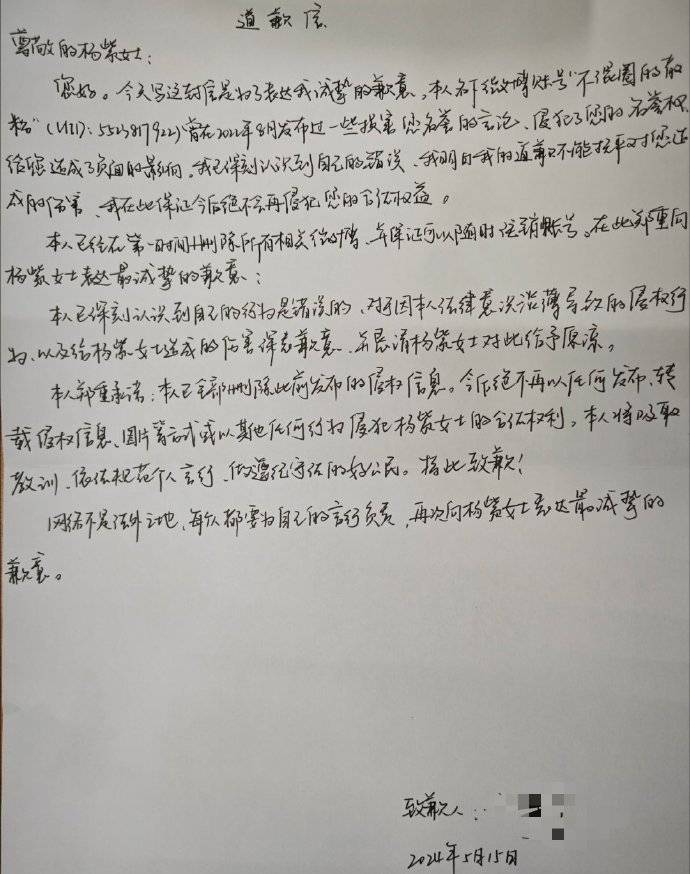 道歉信
尊敬的杨紫女士：
您好。今天写这封信是为了表达我诚挚的歉意，本人名下微博账号“不混圈的散
粉”（UID：5523817922）曾在2022年8月发布过一些损害您名誉的言论、侵犯了您的名誉权
给您造成了负面的影响。我已深刻认识到自己的错误，我明白我的道歉不能抚平对您造
成的伤害、我在此保证今后绝不会再侵犯您的合法权益。
本人已经在第一时间删除所有相关微博、并保证可以随时注销账号。在此郑重向
杨紫女士表达最诚挚的歉意：
本人已深刻认识到自己的行为是错误的、对于因本人法律意识淡薄导致的侵权行
为、以及给杨紫女士造成的伤害深表歉意、并恳请杨紫女士对此给予原谅。
本人郑重承诺：本人已全部删除此前发布的侵权信息。今后绝不再以任何发布、转
载侵权信息、图片等方式或以其他任何行为侵犯杨紫女士的合法权利，本人将吸取
教训、依法规范个人言行、做遵纪守法的好公民。据此致歉！
网络不是法外之地、每个人都要为自己的言行负责，再次向杨紫女士表达最诚挚的
歉意。
致歉人：
2024年5月15日